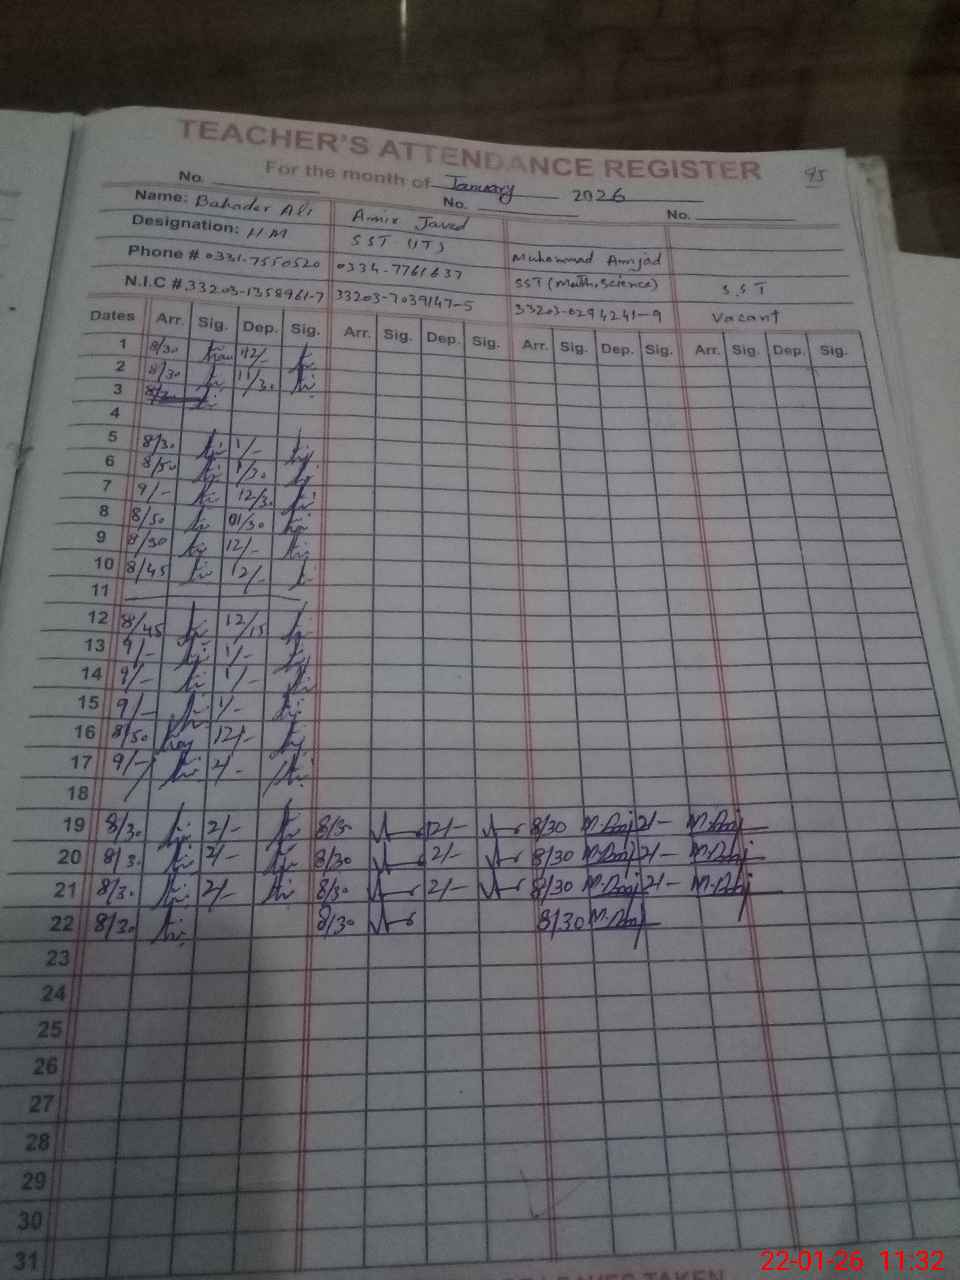 TEACHER'S ATTENDANCE REGISTER
95
For the month of January 2026
No. No. No.
Name: Bahader Ali Amir Javed Muhammad Amjad
Designation: HM SST (IT) SST (Math, Science) S.S.T
Phone # 0331-7550520 0334-7761637
N.I.C #.33203-1358961-7 33203-7039147-5 33203-0294241-9 Vacant
Dates Arr. Sig. Dep. Sig. Arr. Sig. Dep. Sig. Arr. Sig. Dep. Sig. Arr. Sig. Dep. Sig.
1 8/30 12/-
2 8/30 11/30
3
4
5 8/30 1/-
6 8/50 1/30
7 9/- 12/30
8 8/50 01/30
9 8/50 12/-
10 8/45 12/-
11
12 8/45 12/15
13 9/- 1/-
14 9/- 1/-
15 9/- 1/-
16 8/50 12/-
17 9/- 2/-
18
19 8/30 2/- 8/30 2/- 8/30 2/-
20 8/30 2/- 8/30 2/- 8/30 2/-
21 8/30 2/- 8/30 2/- 8/30 2/-
22 8/30 8/30 8/30
23
24
25
26
27
28
29
30
31
22-01-26 11:32